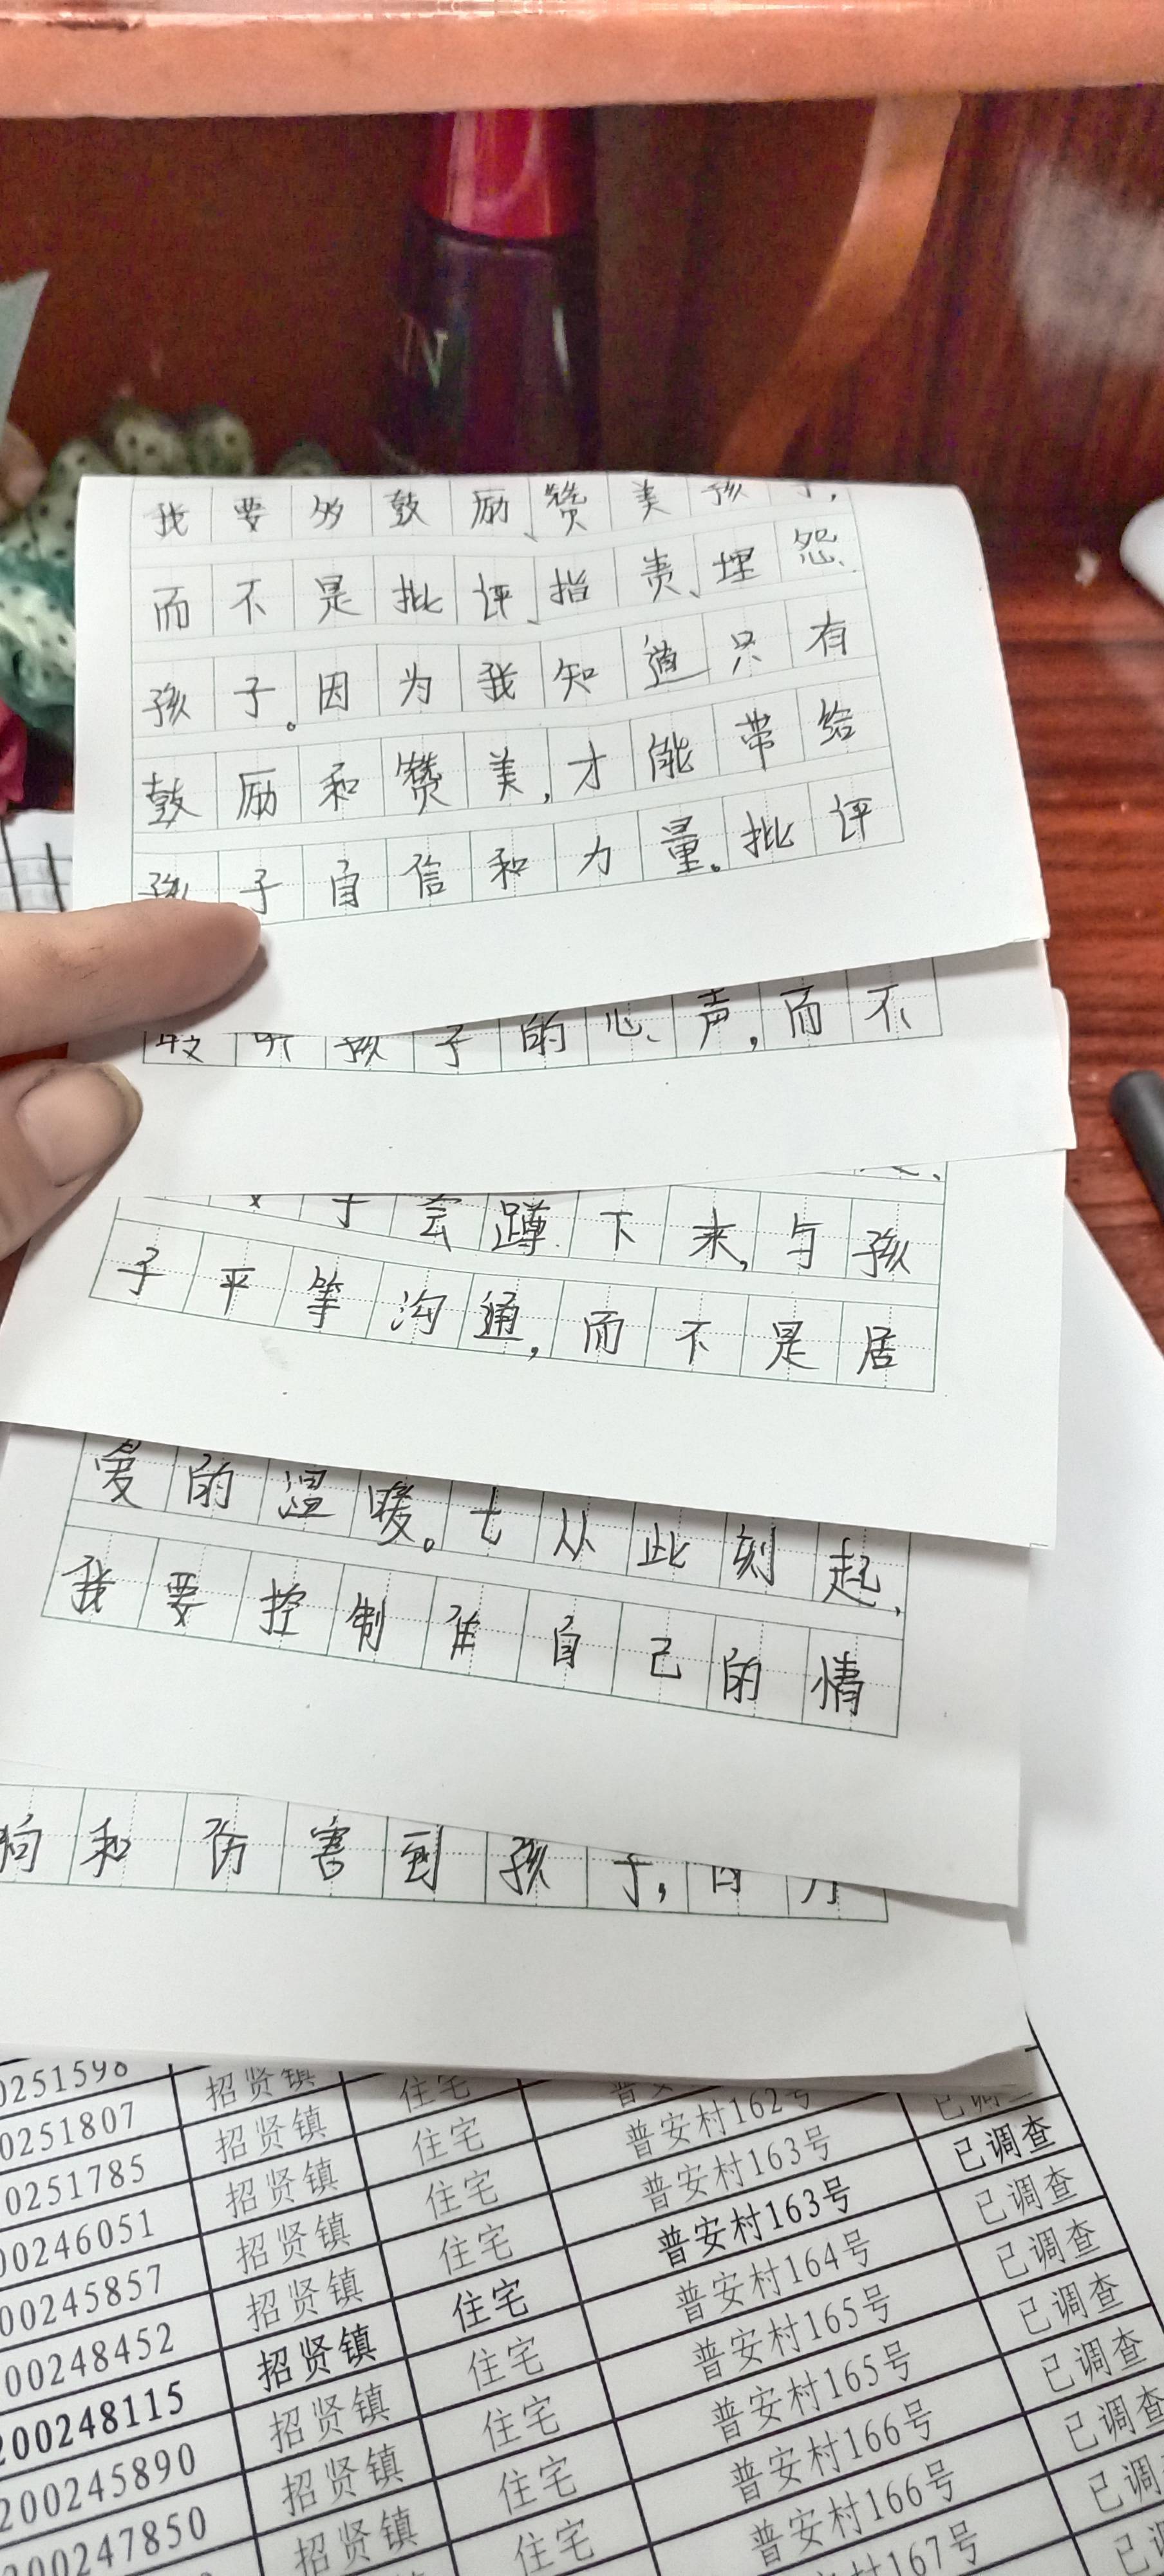 IN
我要多鼓励、赞美孩子,
而不是批评、指责、埋怨、
孩子。因为我知道只有
鼓励和赞美,才能带给
孩子自信和力量。批评
听孩子的心声,而不
会蹲下来,与孩
子平等沟通,而不是居
爱的温暖。七从此刻起,
我要控制住自己的情
和伤害到孩子,因为
0251598 招贤镇 住宅 普
0251807 招贤镇 住宅 普安村162号 已调查
0251785 招贤镇 住宅 普安村163号 已调查
00246051 招贤镇 住宅 普安村163号 已调查
00245857 招贤镇 住宅 普安村164号 已调查
00248452 招贤镇 住宅 普安村165号 已调查
200248115 招贤镇 住宅 普安村165号 已调查
200245890 招贤镇 住宅 普安村166号 已调查
200247850 招贤镇 住宅 普安村166号 已调
招贤镇 住宅 普安村167号 已